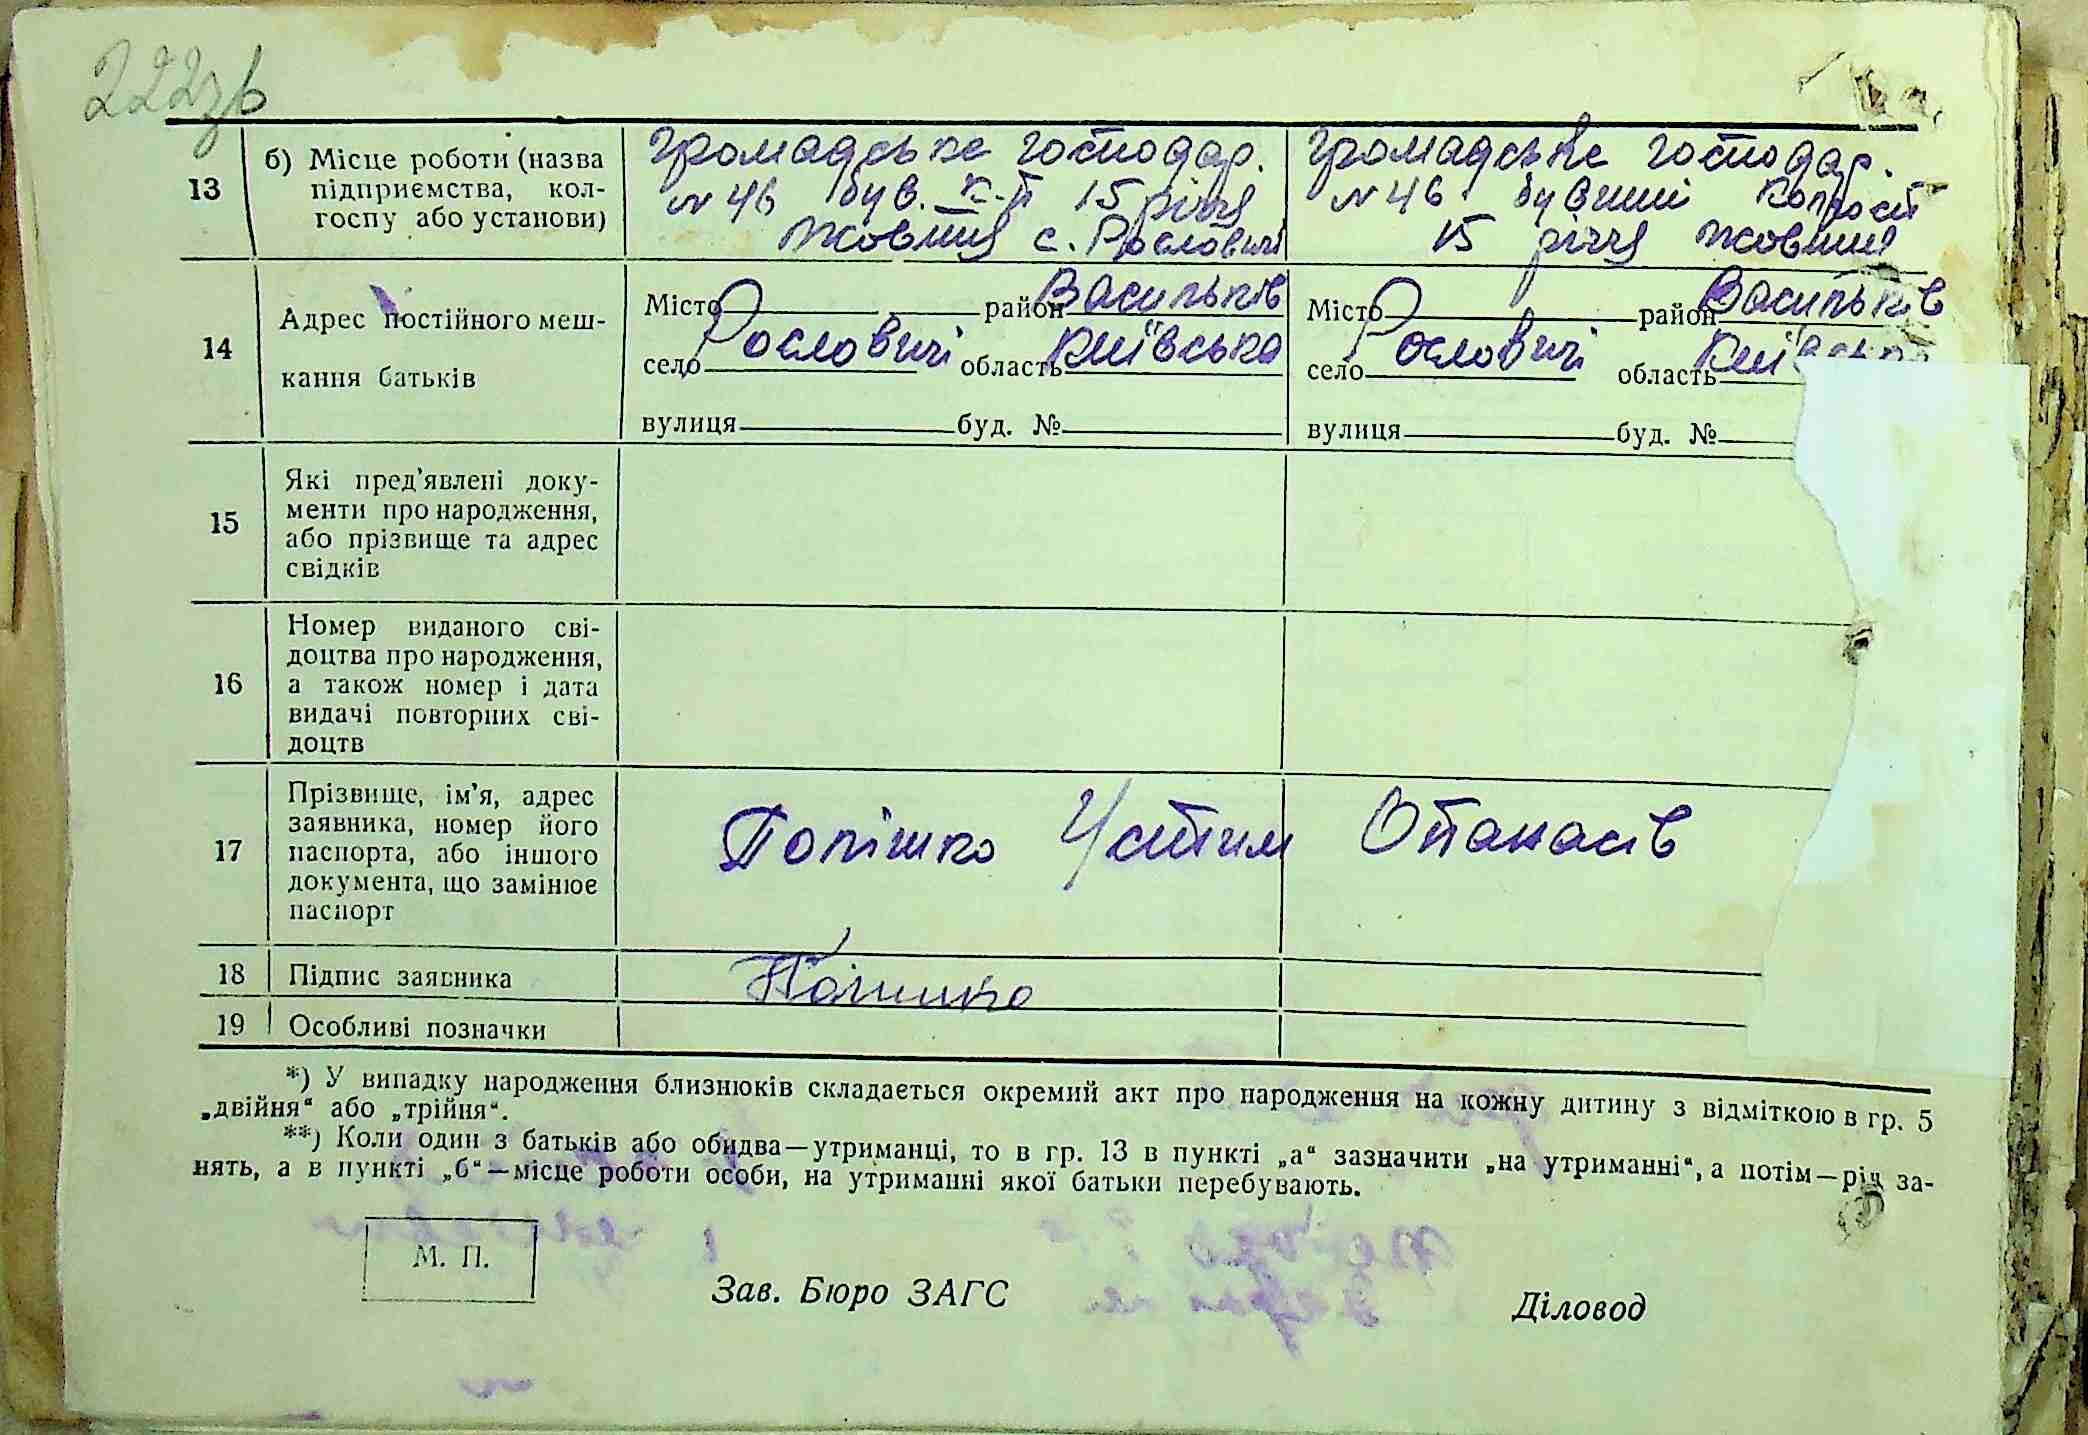 222зв
13
б) Місце роботи (назва
підприємства, кол-
госпу або установи)
громадське господар.
N 46 був. к-п 15 річчя
Жовтня с. Рословичі
громадське господар.
N 46 бувший колгосп
15 річчя жовтня
14
Адрес постійного меш-
кання батьків
Місто район Васильків
село Рословичі область Київська
вулиця буд. №
Місто район Васильків
село Рословичі область
вулиця буд. №
15
Які пред’явлені доку-
менти про народження,
або прізвище та адрес
свідків
16
Номер виданого сві-
доцтва про народження,
а також номер і дата
видачі повторних сві-
доцтв
17
Прізвище, ім’я, адрес
заявника, номер його
паспорта, або іншого
документа, що замінює
паспорт
Попішко Устим Опанасів
18 Підпис заявника
19 Особливі позначки
*) У випадку народження близнюків складається окремий акт про народження на кожну дитину з відміткою в гр. 5
„двійня“ або „трійня“.
**) Коли один з батьків або обидва—утриманці, то в гр. 13 в пункті „а“ зазначити „на утриманні“, а потім—рід за-
нять, а в пункті „б“—місце роботи особи, на утриманні якої батьки перебувають.
М. П.
Зав. Бюро ЗАГС
Діловод